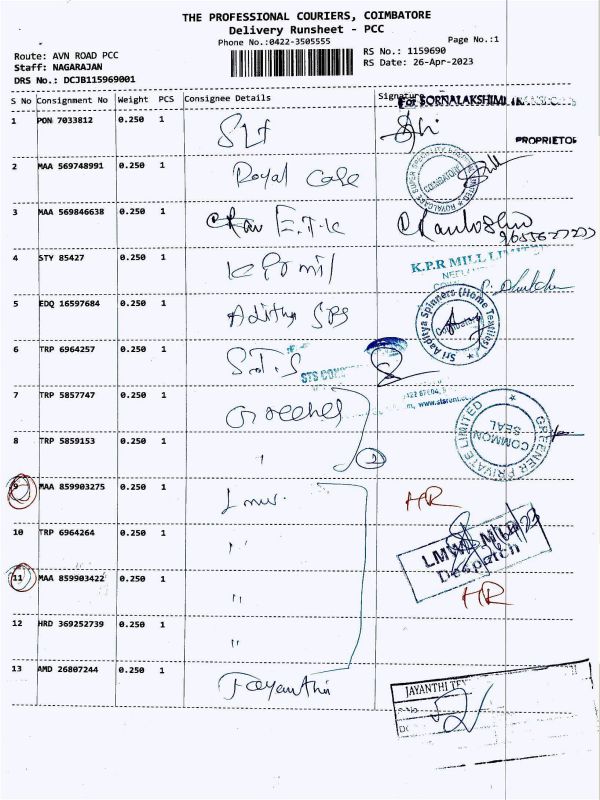 THE PROFESSIONAL COURIERS, COIMBATORE
Delivery Runsheet - PCC
Phone No.:0422-3505555
Page No.:1
Route: AVN ROAD PCC
RS No.: 1159690
Staff: NAGARAJAN
RS Date: 26-Apr-2023
DRS No.: DCJB115969001
S No Consignment No Weight PCS Consignee Details Signature
For SORNALAKSHIMI
1 PON 7033812 0.250 1
PROPRIETOR
2 MAA 569748991 0.250 1 Royal Care
COIMBATORE
3 MAA 569846638 0.250 1 E.T.K
4 STY 85427 0.250 1 K P R mil
K.P.R MILL LIMITED
5 EDQ 16597684 0.250 1 Adithya Sps
Sri Aaditya Spinners (Home Textiles)
Coimbatore
6 TRP 6964257 0.250 1 S.T.S
STS
7 TRP 5857747 0.250 1 Greener
GREENER PRIVATE LIMITED
COMMON SEAL
8 TRP 5859153 0.250 1 "
2
9 MAA 859903275 0.250 1 Lmw. HR
10 TRP 6964264 0.250 1 "
LMW
Despatch
11 MAA 859903422 0.250 1 " HR
12 HRD 369252739 0.250 1 "
13 AMD 26807244 0.250 1 Jayanthi
JAYANTHI TEX